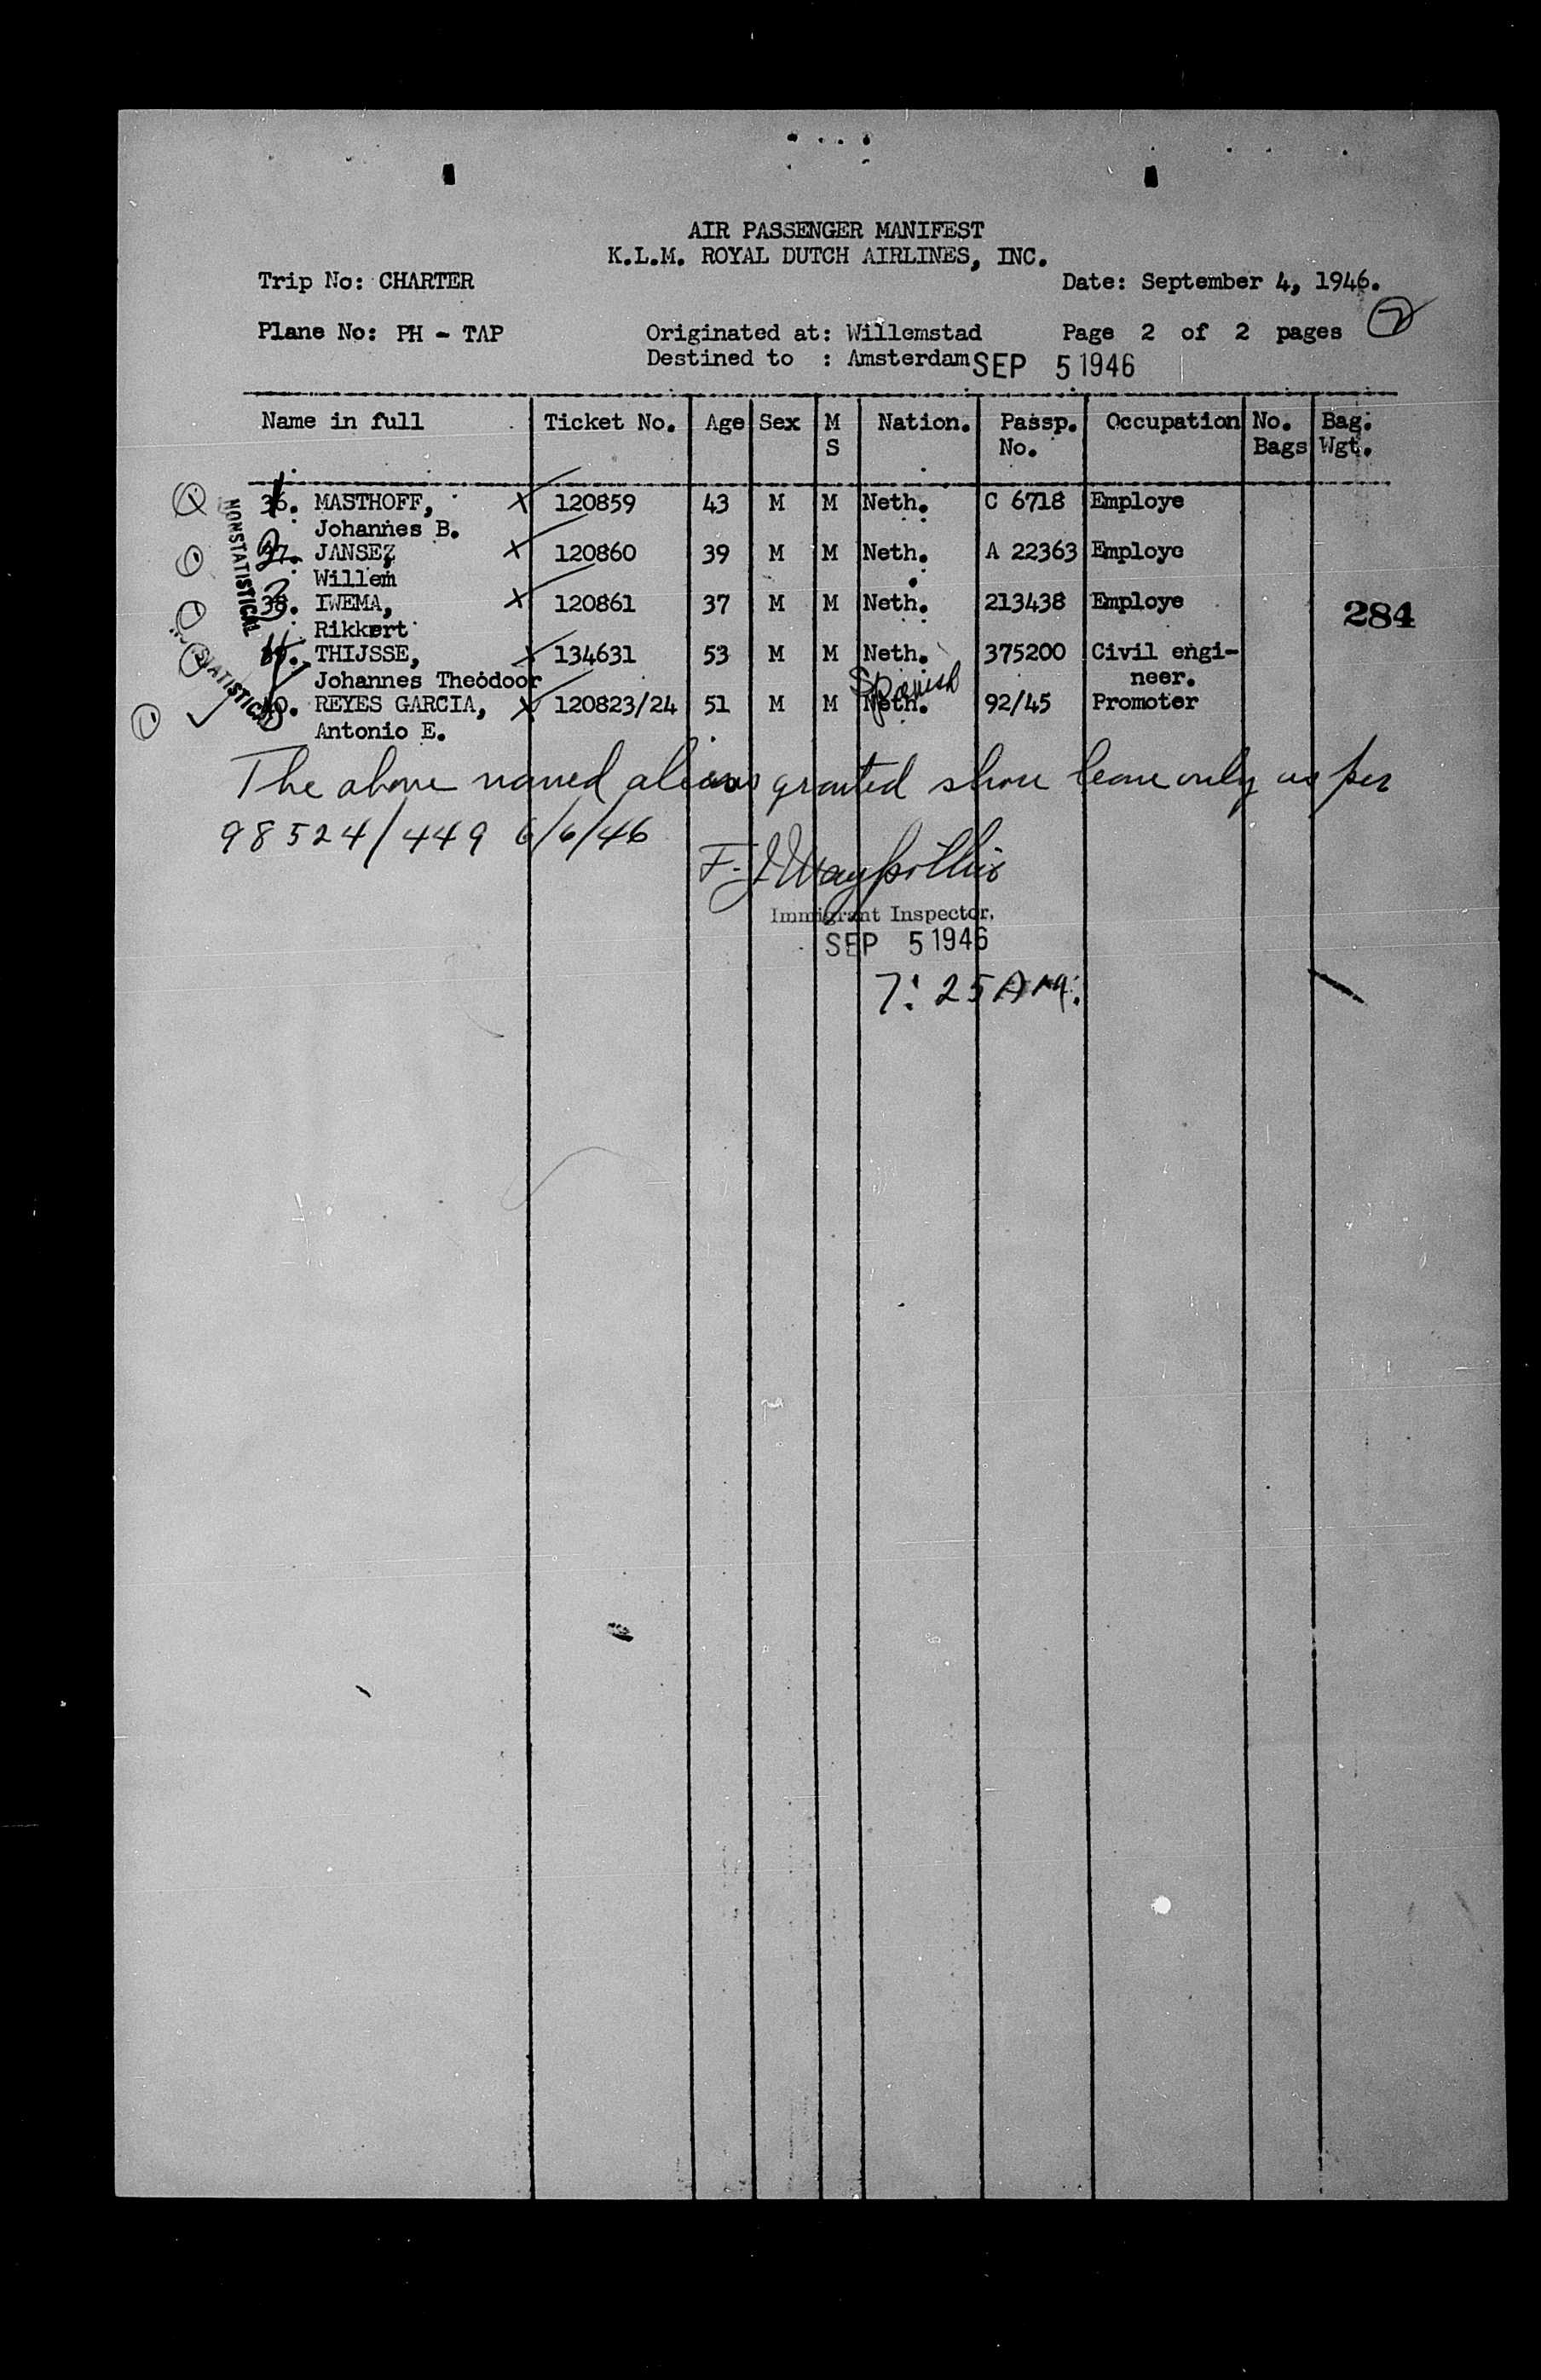 AIR PASSENGER MANIFEST
K.L.M. ROYAL DUTCH AIRLINES, INC.
Trip No: CHARTER Date: September 4, 1946.
Plane No: PH - TAP Originated at: Willemstad Page 2 of 2 pages 2
Destined to : Amsterdam SEP 5 1946
Name in full Ticket No. Age Sex M Nation. Passp. Occupation No. Bag.
S No. Bags Wgt.
36. MASTHOFF, X 120859 43 M M Neth. C 6718 Employe
Johannes B.
37. JANSEZ, X 120860 39 M M Neth. A 22363 Employe
Willem
38. IWEMA, X 120861 37 M M Neth. 213438 Employe
284
Rikkert
39. THIJSSE, X 134631 53 M M Neth. 375200 Civil engi-
Johannes Theodoor neer.
Spanish
40. REYES GARCIA, X 120823/24 51 M M Neth. 92/45 Promoter
Antonio E.
NONSTATISTICAL
STATISTICAL
The above named aliens granted shore leave only as per
98524/449 6/6/46
Immigrant Inspector,
SEP 5 1946
7:25 AM.